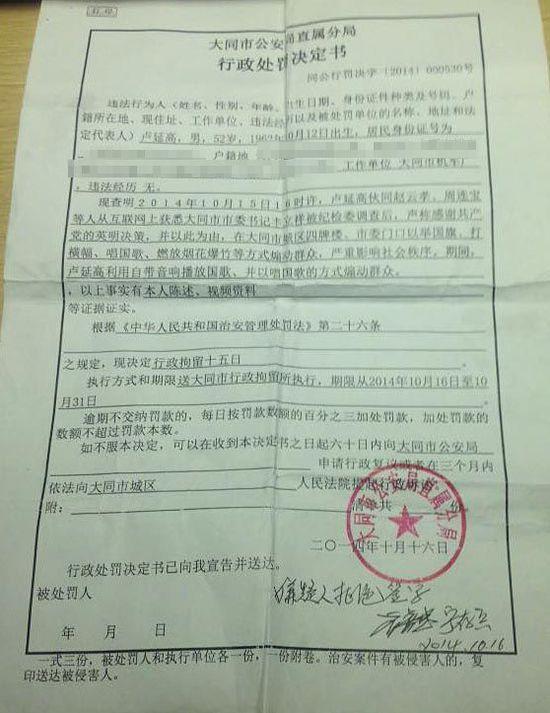 打印
大同市公安局直属分局
行政处罚决定书
同公行罚决字〔2014〕000530号
违法行为人（姓名、性别、年龄、出生日期、身份证件种类及号码、户
籍所在、现住址、工作单位、违法经历以及被处罚单位的名称、地址和法
定代表人）卢延高，男，52岁，1962年10月12日出生，居民身份证号为
户籍地 工作单位 大同市机车厂
，违法经历 无。
现查明2014年10月15日16时许，卢延高伙同赵云孝、周连宝
等人从互联网上获悉大同市市委书记丰立祥被纪检委调查后，声称感谢共产
党的英明决策，并以此为由，在大同市城区四牌楼、市委门口以举国旗，打
横幅、唱国歌、燃放烟花爆竹等方式煽动群众，严重影响社会秩序，期间，
卢延高利用自带音响播放国歌、并以唱国歌的方式煽动群众。
，以上事实有本人陈述、视频资料
等证据证实。
根据《中华人民共和国治安管理处罚法》第二十六条
之规定，现决定行政拘留十五日
执行方式和期限送大同市行政拘留所执行，期限从2014年10月16日至10
月31日
逾期不交纳罚款的，每日按罚款数额的百分之三加处罚款，加处罚款的
数额不超过罚款本数。
如不服本决定，可以在收到本决定书之日起六十日内向大同市公安局
申请行政复议或者在三个月内
依法向大同市城区 人民法院提起行政诉讼
附： 清单共 份
大同市公安局直属分局
二〇一四年十月十六日
行政处罚决定书已向我宣告并送达。
被处罚人 嫌疑人拒绝签字
年 月 日 2014.10.16
一式三份，被处罚人和执行单位各一份，一份附卷。治安案件有被侵害人的，复
印送达被侵害人。